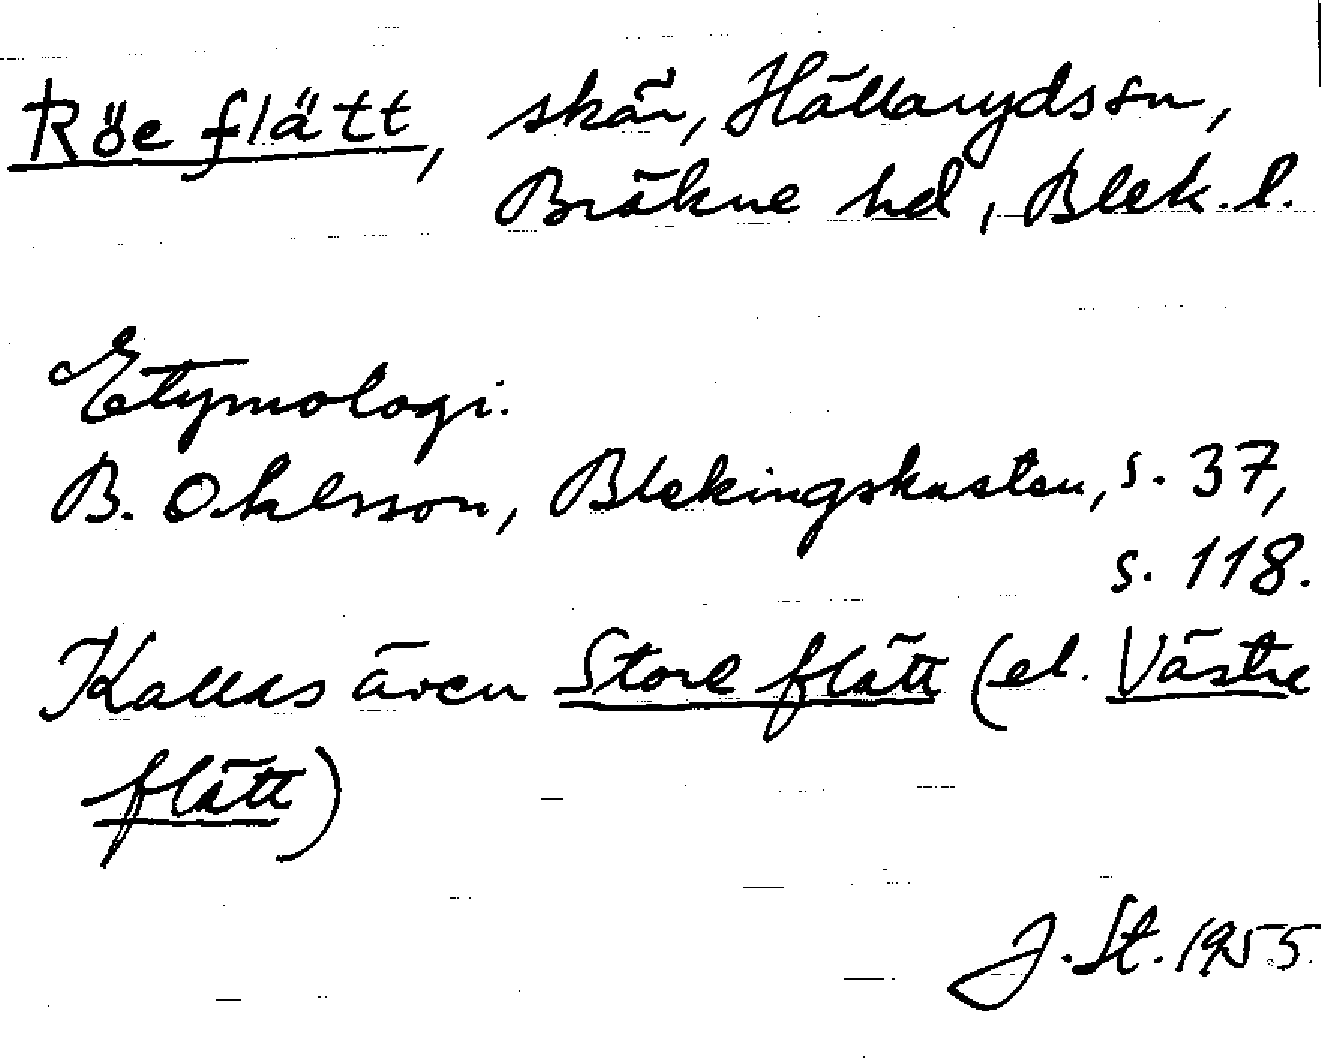 Röe flätt, skär, Hällarydssn,
Bräkne hd, Blek. l.
Etymologi.
B. Ohlsson, Blekingskusten, s. 37,
s. 118.
Kallas även Store flätt (el. Västre
flätt)
J. St. 1955